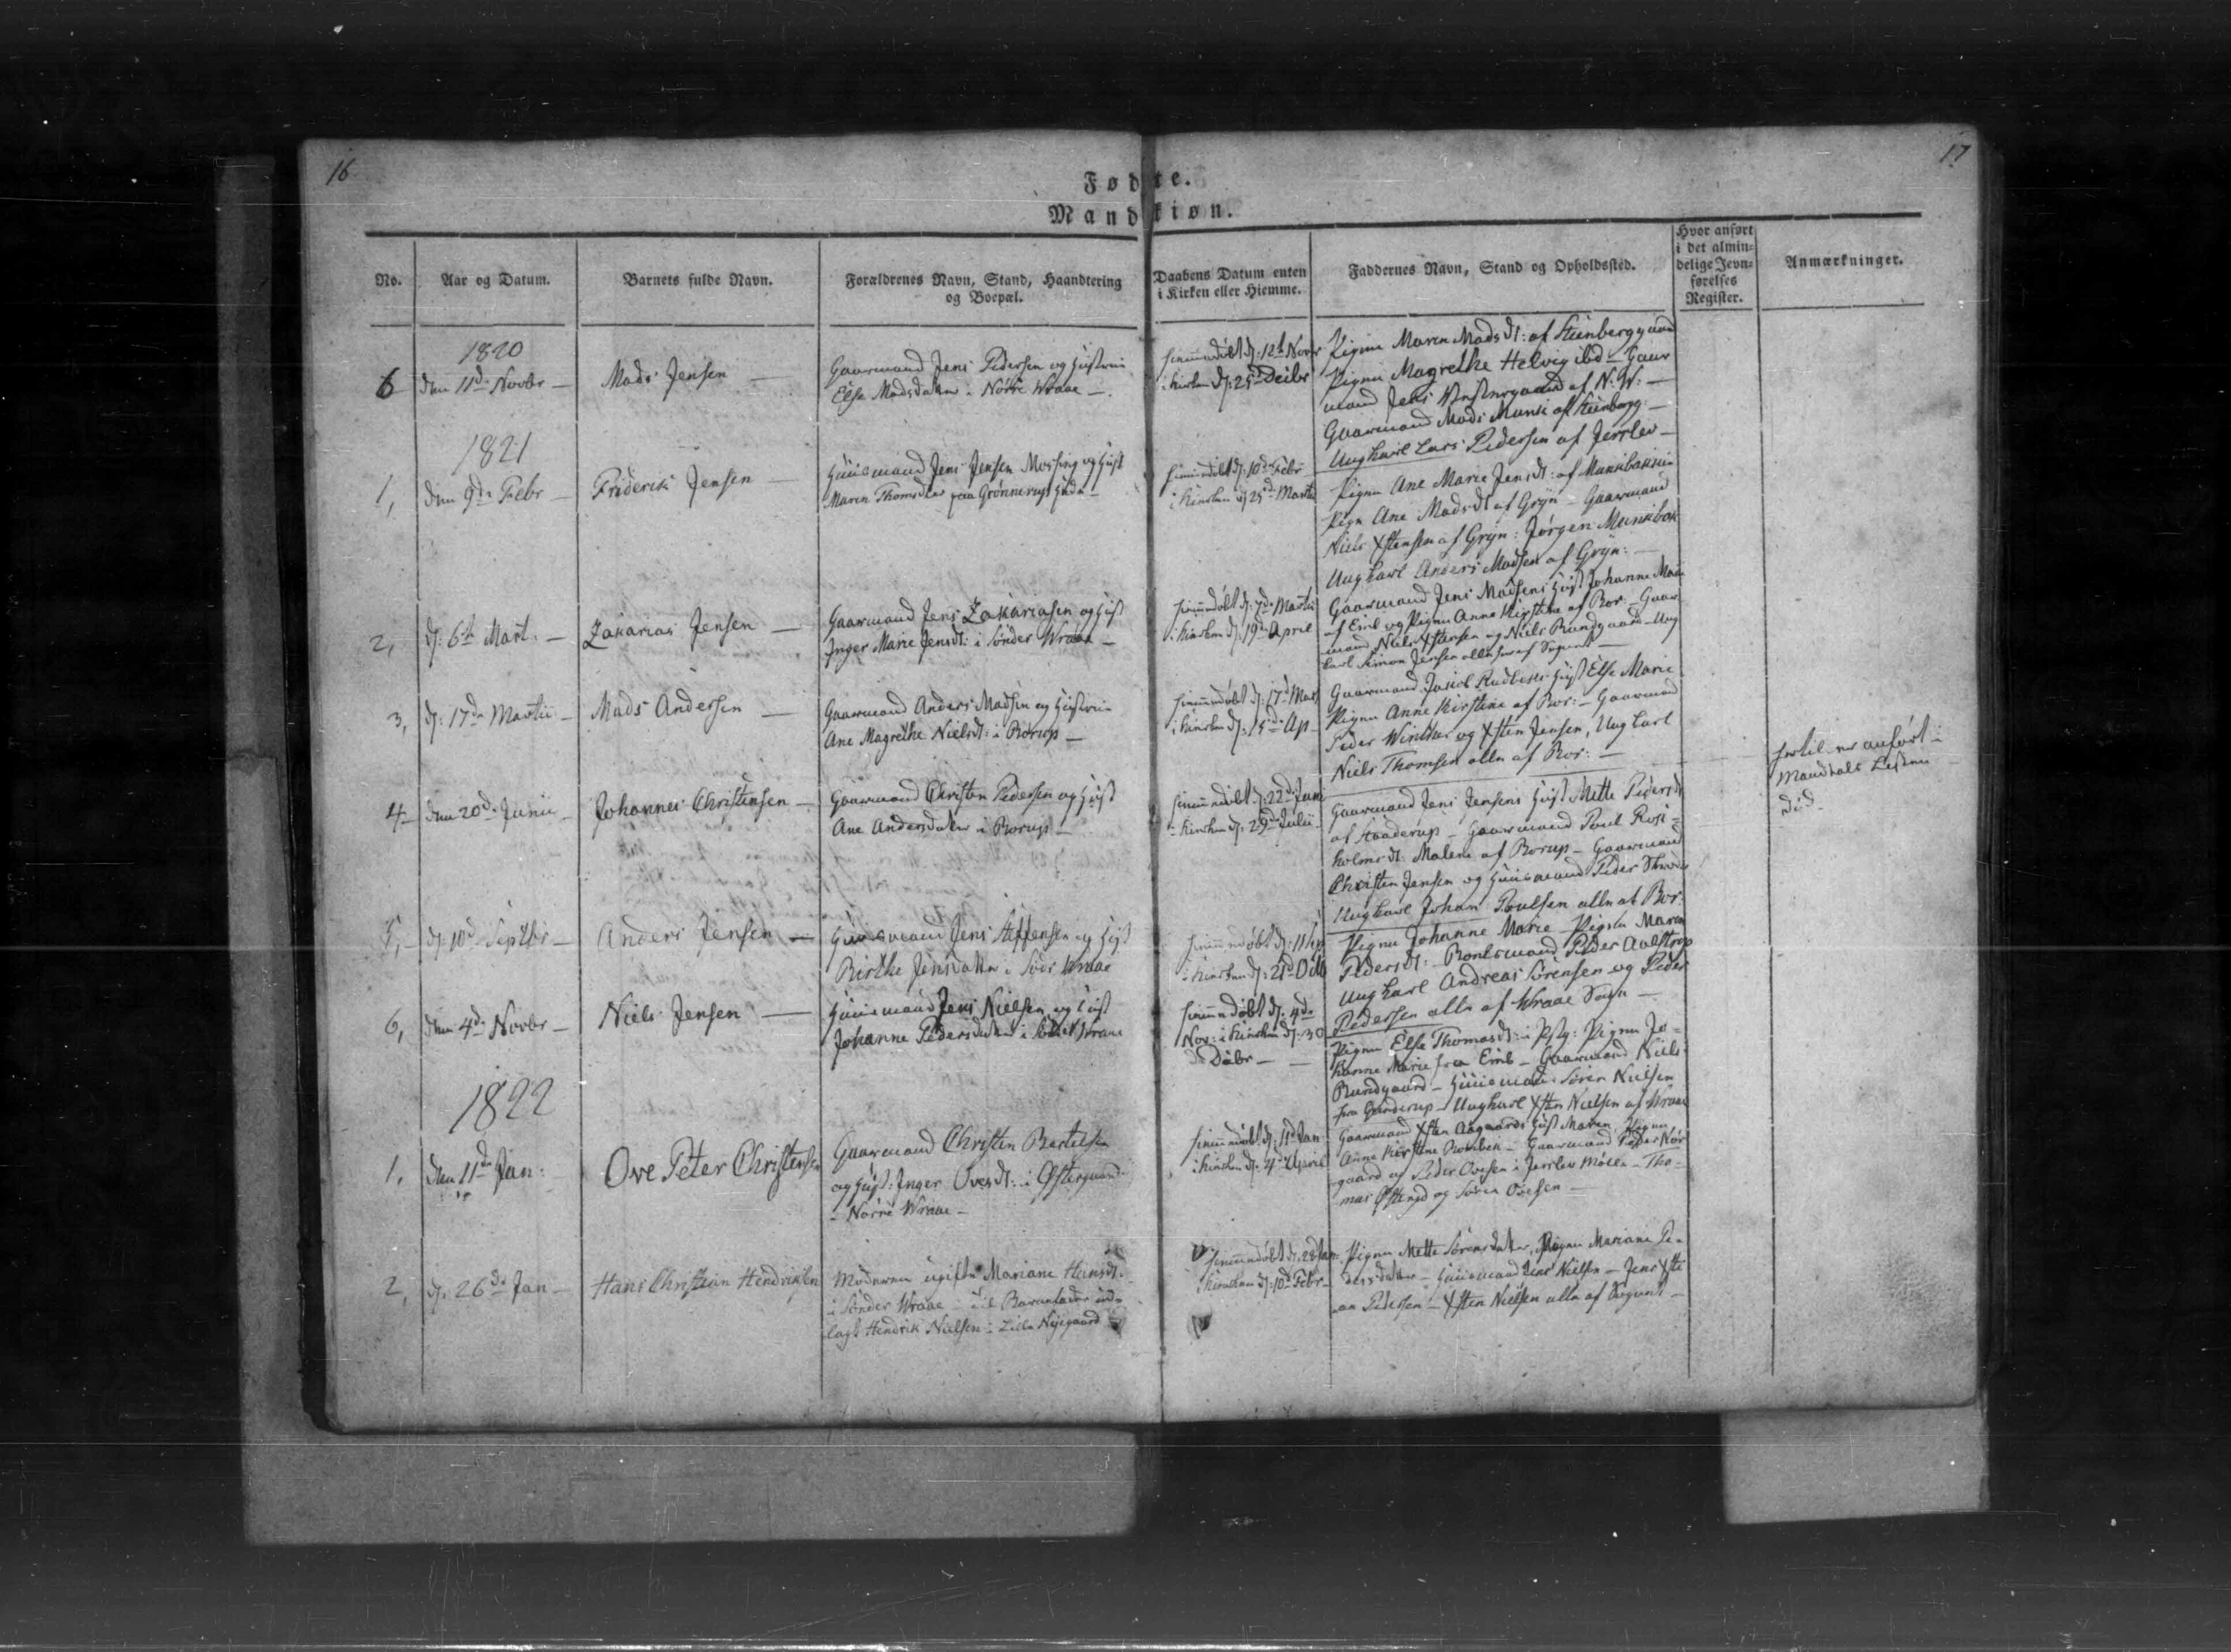 16
17
Fødte.
Mandkiøn.
No.
Aar og Datum.
Barnets fulde Navn.
Forældrenes Navn, Stand, Haandtering
og Boepæl.
Daabens Datum enten
i Kirken eller Hiemme.
Faddernes Navn, Stand og Opholdssted.
Hvor anført
i det almin=
delige Jevn=
førelses
Register.
Anmærkninger.
1820
6
den 11d Novbr —
Mads Jensen —
Gaarmand Jens Pedersen og Hustrue
Else Madsdatter i Nørre Wraae —
hiemmedøbt d: 12t Novbr
i Kirken d: 25d Decbr
Pigen Maren Madsdt: af Steenberggaard
Pigen Magrethe Helvig ibd — Gaar
mand Jens af N: W: —
Gaarmand Mads Munk af Steenberg: —
Ungkarl Lars Pedersen af Jerslev —
1821
1,
den 9de Febr —
Friderik Jensen —
Huusmand Jens Jensen Mossing og Hust
Maren Thomsdtter paa Grønnerup Hede —
hiemmedøbt d: 10de Febr
i Kirken d: 25d Martii
Pigen Ane Marie Jensdt: af Munkbakken
Pigen Ane Madsdt af Gryn — Gaarmand
Niels Xstensen af Gryn: Jørgen Munkbak
Ungkarl Anders Madsen af Gryn: —
2,
d: 6te Mart: —
Zakarias Jensen —
Gaarmand Jens Zakariasen og Hust
Inger Marie Jensdt: i Sønder Wraae —
hiemmedøbt d: 7de Martii
i Kirken d: 19de April
Gaarmand Jens Madsens Hust Johanne Marie
af Emb og Pigen Anne Kirstine af Bor: Gaar
mand Niels Xstensen og Niels Rundgaard — Ung
karl Simon Jensen alle her af Sognet —
3,
d: 17de Martii —
Mads Andersen —
Gaarmand Anders Madsen og Hustrue
Ane Magrethe Nielsdt: i Borup —
hiemmedøbt d: 17d Mart
i Kirken d: 15de Ap —
Gaarmand Jakob Hust Else Marie
Pigen Anne Kirstine af Bor: — Gaarmand
Peder Winther og Xsten Jensen, Ungkarl
Niels Thomsen alle af Bor: —
4 —
den 20de Junii —
Johannes Christensen —
Gaarmand Christen Pedersen og Hust
Ane Andersdatter i Borup —
hiemmedøbt d: 22d Juni
i Kirken d: 29de Julii —
Gaarmand Jens Jensens Hust Mette Pedersdt
af Staaderup — Gaarmand Poul Ros=
holms dt: Malene af Borup — Gaarmand
Christen Jensen og Huusmand Peder
Ungkarl Johan Poulsen alle af Bor:
hertil er anført i
Mandtals Listen
5, —
d: 10d Septbr —
Anders Jensen —
Huusmand Jens Steffensen og Hust
Birthe Jensdatter i Sdr Wraae
hiemmedøbt d: 11 Sep
i Kirken d: 21d Octb
Pigen Johanne Marie — Pigen Maren
Pedersdt: — Boelsmand Peder Aalstrup
Ungkarl Andreas Sørensen og Peder
Pedersen alle af Wraae Sogn —
6,
den 4de Novbr —
Niels Jensen —
Huusmand Jens Nielsen og Hust
Johanne Pedersdatter i Sønder Wraae
hiemmedøbt d: 4de
Nov: i Kirken d: 30
d Decbr — —
Pigen Else Thomasdt: i Pigen Jo=
hanne Marie fra Emb — Gaarmand Niels
Rundgaard — Huusmand Søren Nielsen
fra Gunderup — Ungkarl Xsten Nielsen af Wraae
1822
1,
den 11de Jan:
Ove Peter Christensen
Gaarmand Christen Bertelsen
og Hust: Inger Ovesdt: i Østergaard
i Nørre Wraae —
hiemmedøbt d: 11d Jan
i Kirken d: 4de April
Gaarmand Xsten Aagaards Hust Maren, Pigen
Anne Kirstine — Gaarmand Peder Nør
gaard og Peder Ovesen i Jerslev Mølle — Tho=
mas og Søren Ovesen —
2,
d: 26de Jan —
Hans Christian Hendriksen
Moderen ugifte Mariane Hansdt:
i Sønder Wraae — til Barnefader ud=
lagt Hendrik Nielsen i Lille Nyegaard
hiemmedøbt d: 28 Jan:
i Kirken d: 10d Febr —
Pigen Mette Sørensdatter, Pigen Mariane Pe=
dersdatter — Huusmand Jens Nielsen — Jens Xsti
an Pedersen — Xsten Nielsen alle af Sognet —